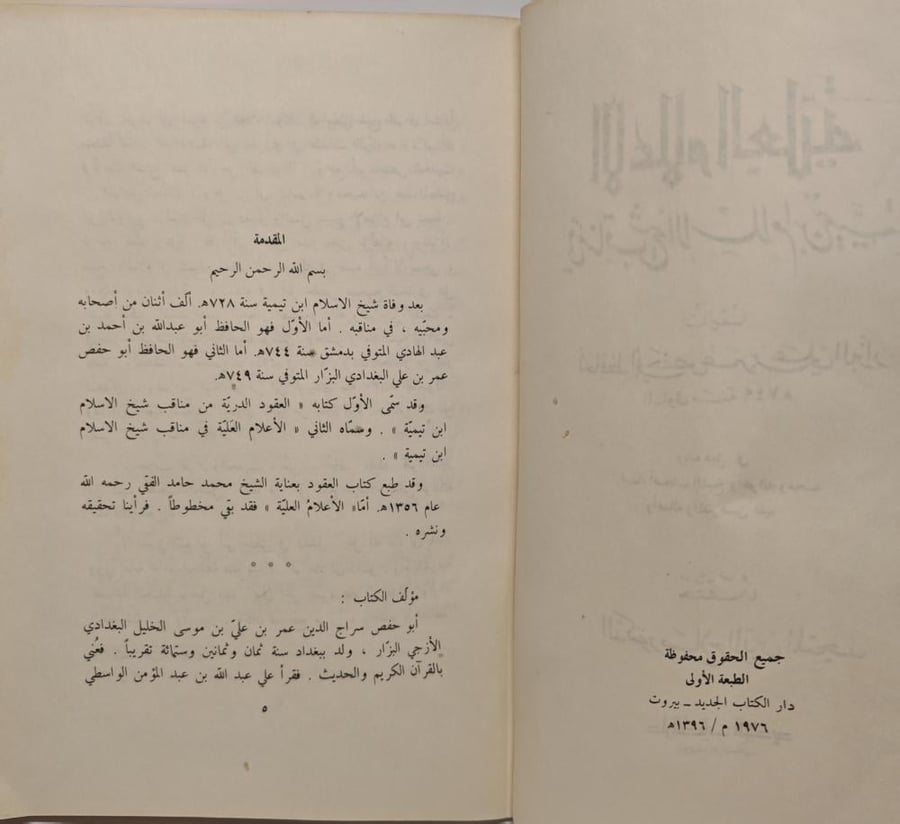 جميع الحقوق محفوظة
الطبعة الأولى
دار الكتاب الجديد ـ بيروت
١٩٧٦ م / ١٣٩٦ه
المقدمة
بسم الله الرحمن الرحيم
بعد وفاة شيخ الاسلام ابن تيمية سنة ٧٢٨ه. ألّف أثنان من أصحابه
ومحبّيه ، في مناقبه . أما الأوّل فهو الحافظ أبو عبدالله بن أحمد بن
عبد الهادي المتوفي بدمشق سنة ٧٤٤ه. أما الثاني فهو الحافظ أبو حفص
عمر بن علي البغدادي البزّار المتوفي سنة ٧٤٩ه.
وقد سمّى الأوّل كتابه « العقود الدريّة من مناقب شيخ الاسلام
ابن تيميّة » . وسمّاه الثاني « الأعلام العَليّة في مناقب شيخ الاسلام
ابن تيمية » .
وقد طبع كتاب العقود بعناية الشيخ محمد حامد الفقي رحمه الله
عام ١٣٥٦ه. أمّا« الأعلامُ العليّة » فقد بقي مخطوطاً . فرأينا تحقيقه
ونشره .
° ° °
مؤلّف الكتاب :
أبو حفص سراج الدين عمر بن عليّ بن موسى الخليل البغدادي
الأزجي البزّار ، ولد ببغداد سنة ثمان وثمانين وستمائة تقريباً . فعُني
بالقرآن الكريم والحديث . فقرأ علي عبد الله بن عبد المؤمن الواسطي
٥